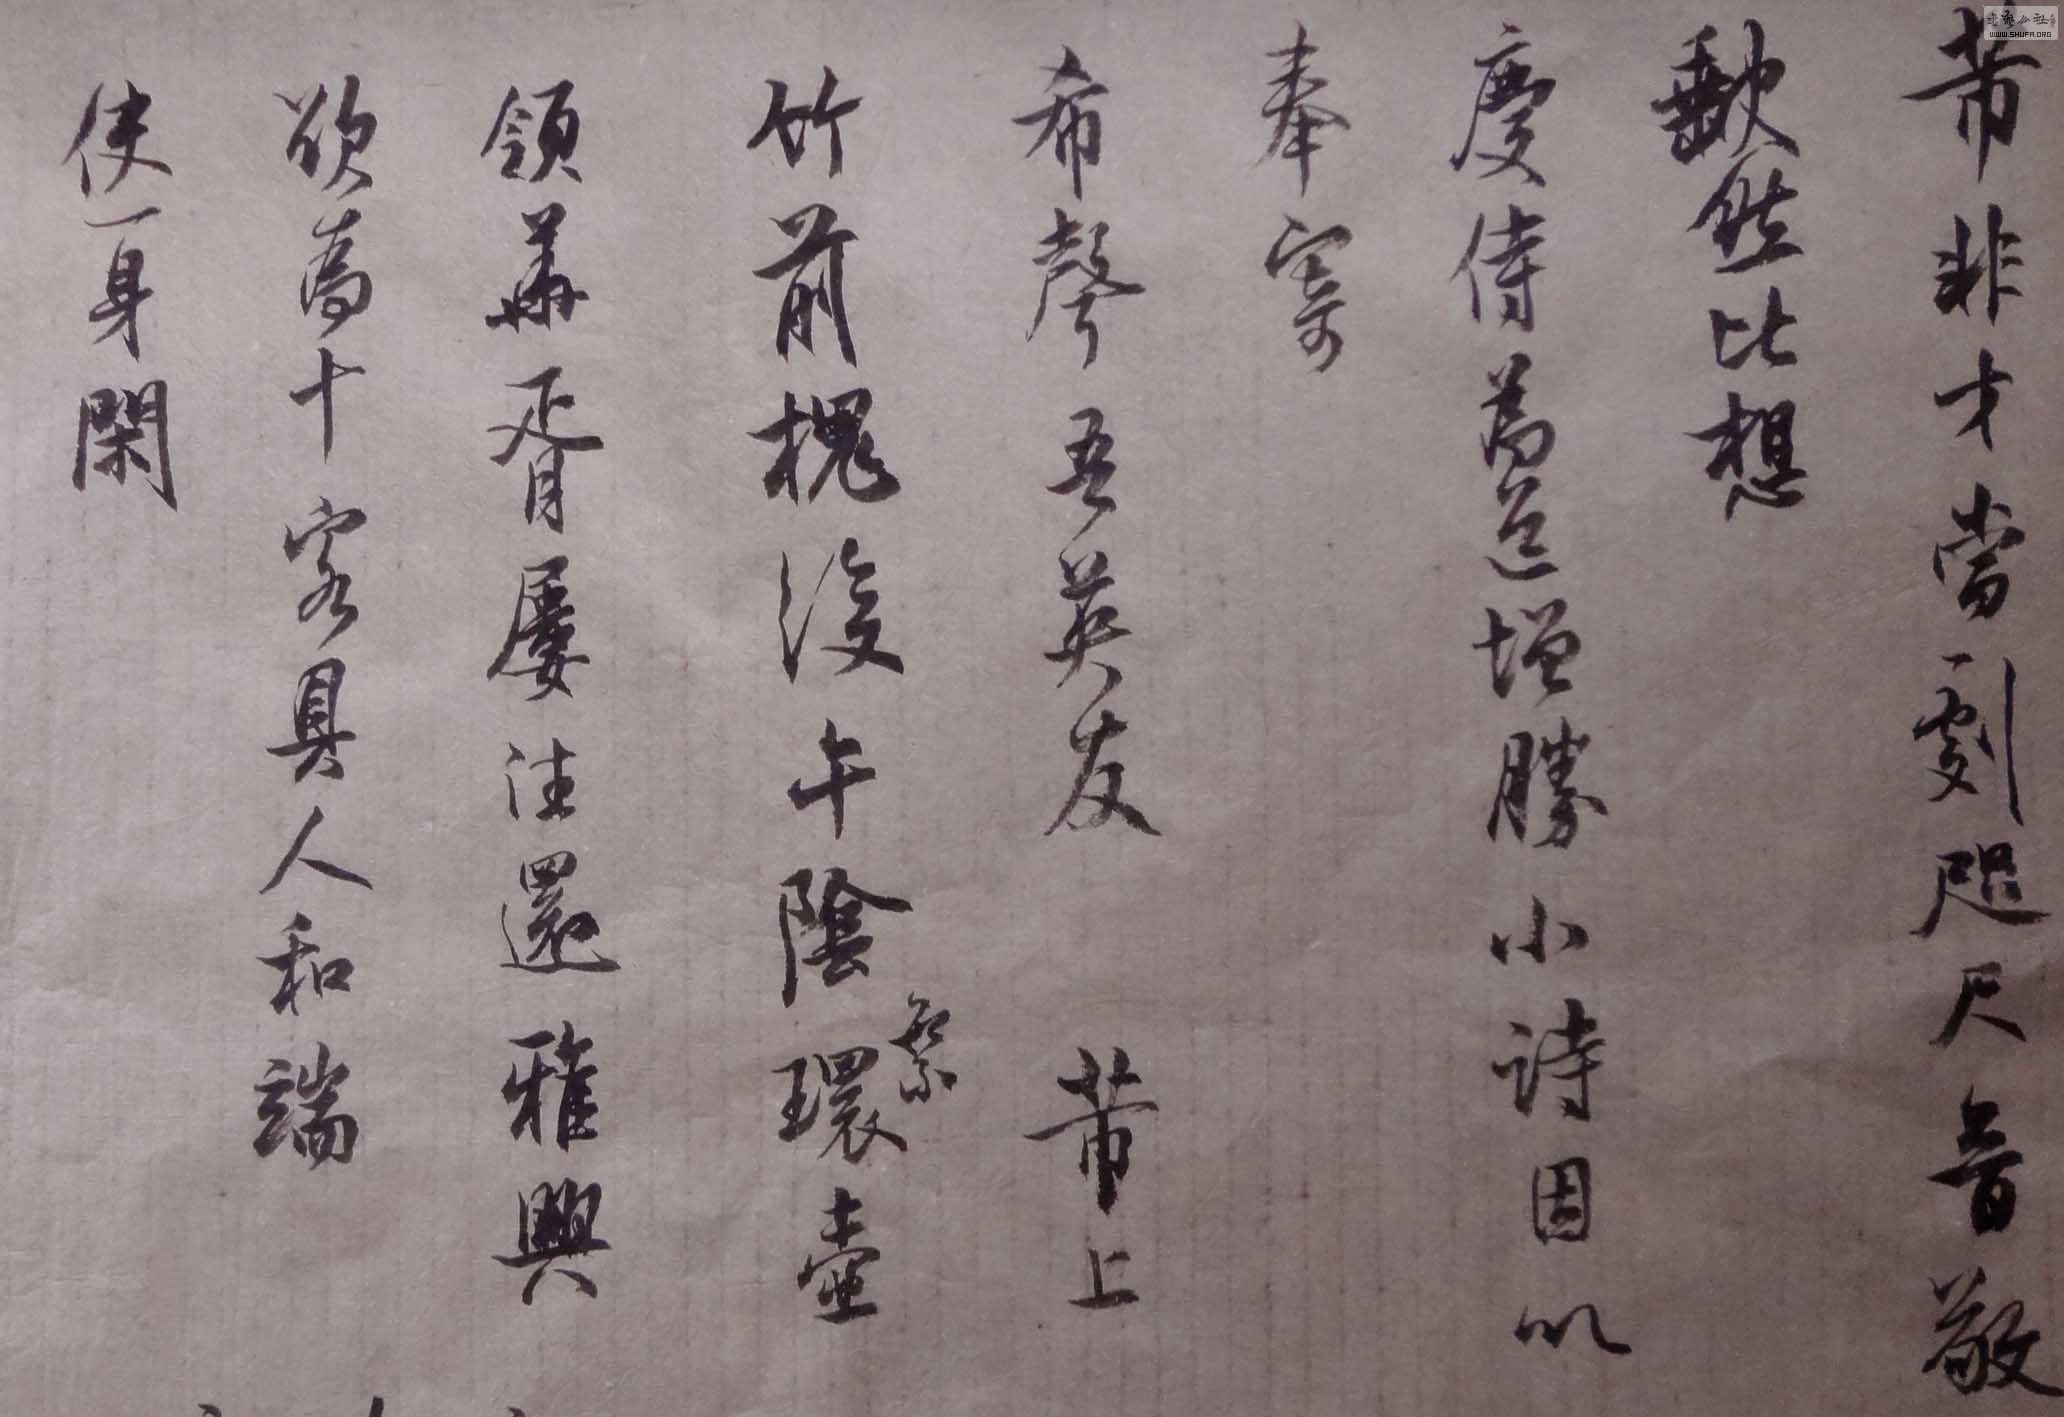 芾非才當劇咫尺音敬
缺然比想
慶侍為道增勝小詩因以
奉寄
希聲吾英友 芾上
竹前槐後午陰環繁壺
領華胥屢往還雅興
欲為十客具人和端
使一身閑
WWW.SHUFA.ORG